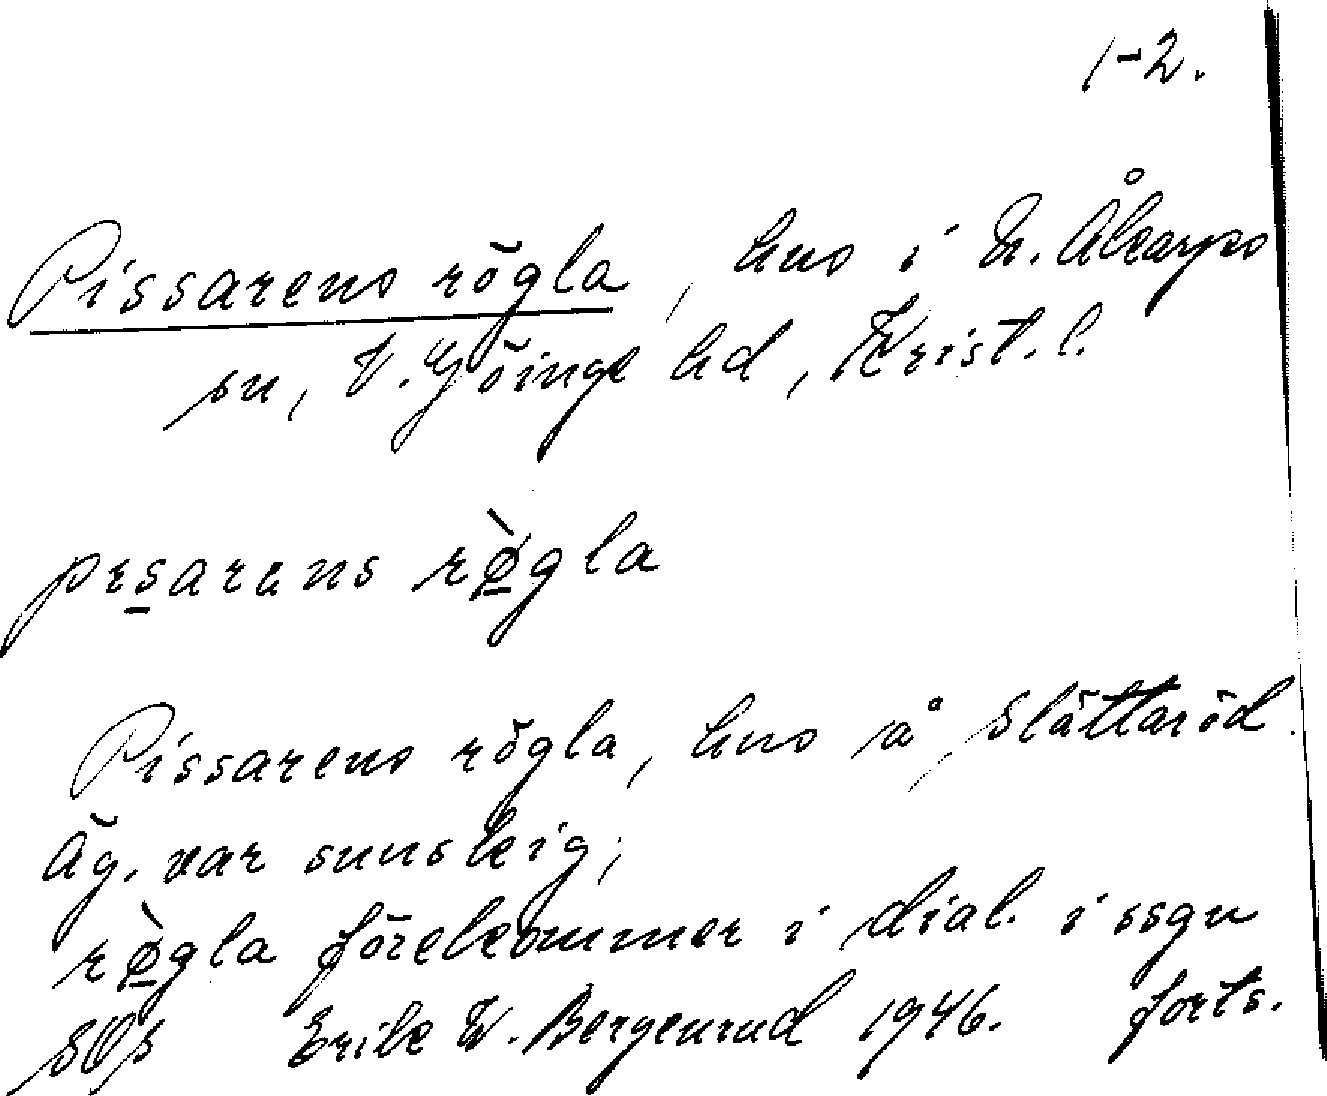 1-2.
Pissarens rögla, hus i N. Åkarps
sn, V. Göinge hd, Krist. l.
pɪs̲arəns rø̲̀gla
Pissarens rögla, hus å Slättaröd.
Äg. var sunskig;
rø̲̀gla förekommer i dial. i ssgn
SOS Erik W. Bergenrud 1946. forts.